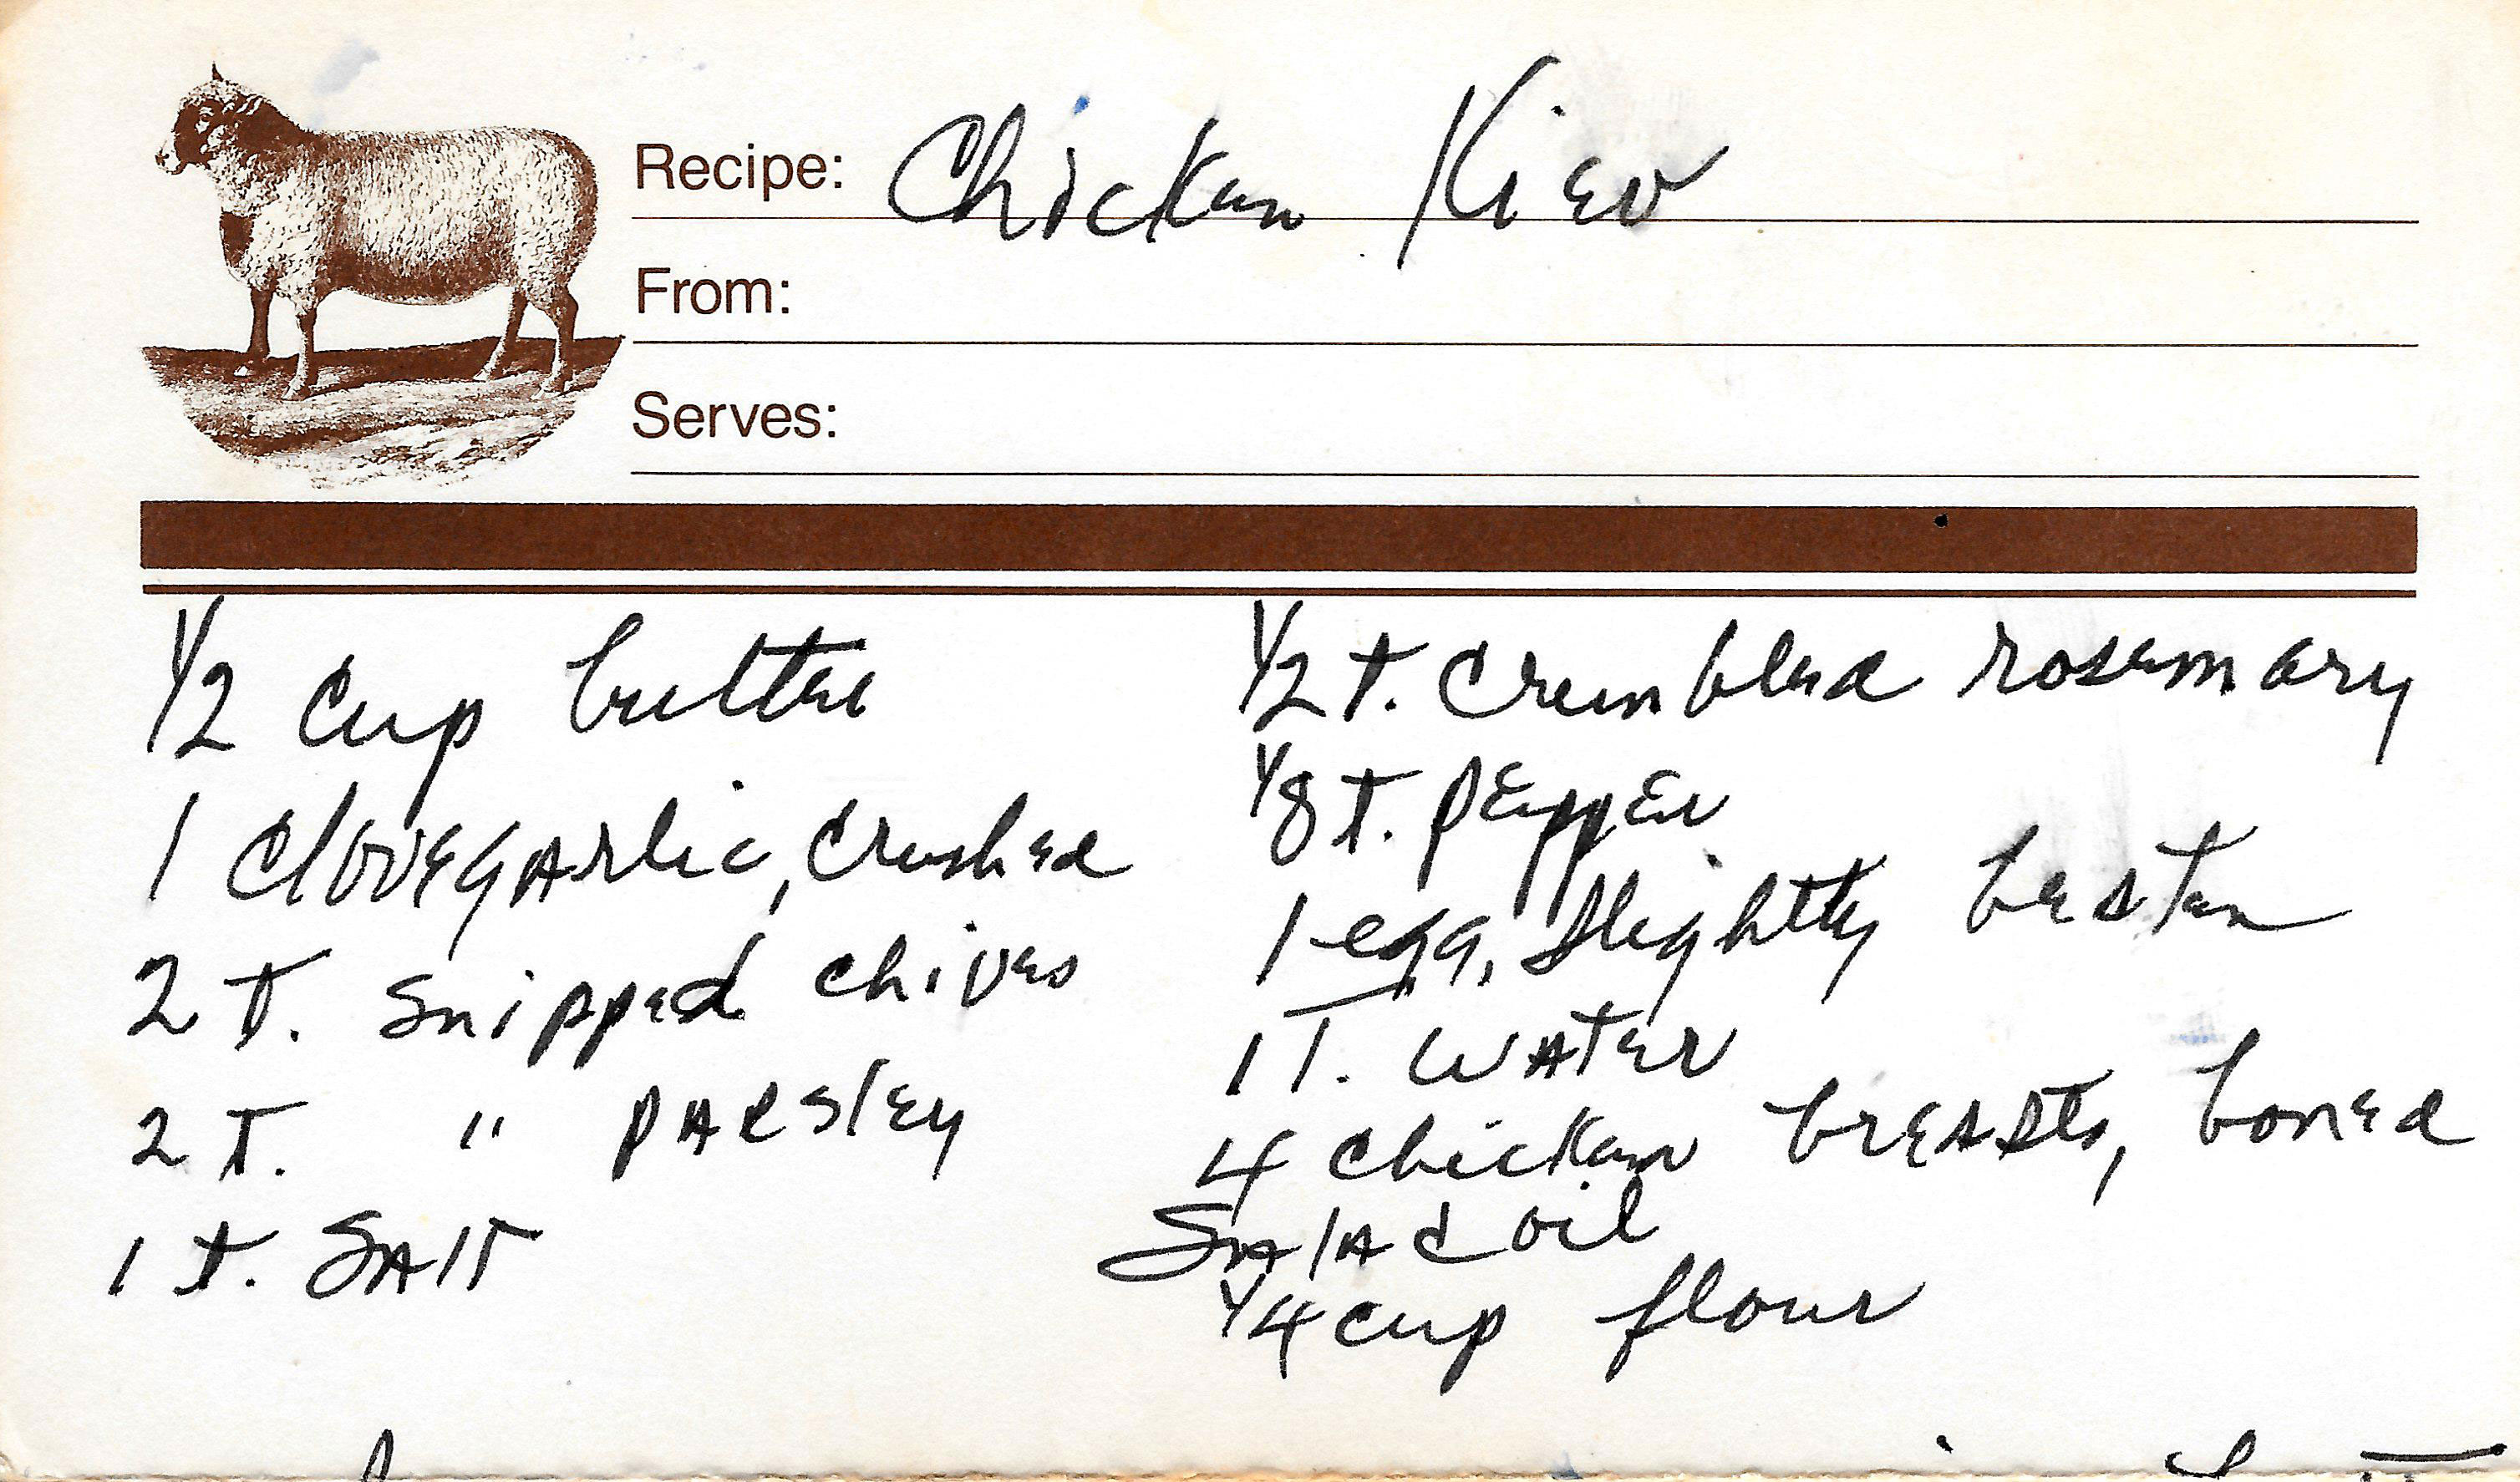 Recipe: Chicken Kiev
From:
Serves:
1/2 cup butter
1 clove garlic, crushed
2 t. snipped chives
2 T. " parsley
1 t. salt
1/2 t. crumbled rosemary
1/8 t. pepper
1 egg, slightly beaten
1 T. water
4 chicken breasts, boned
Salad oil
1/4 cup flour